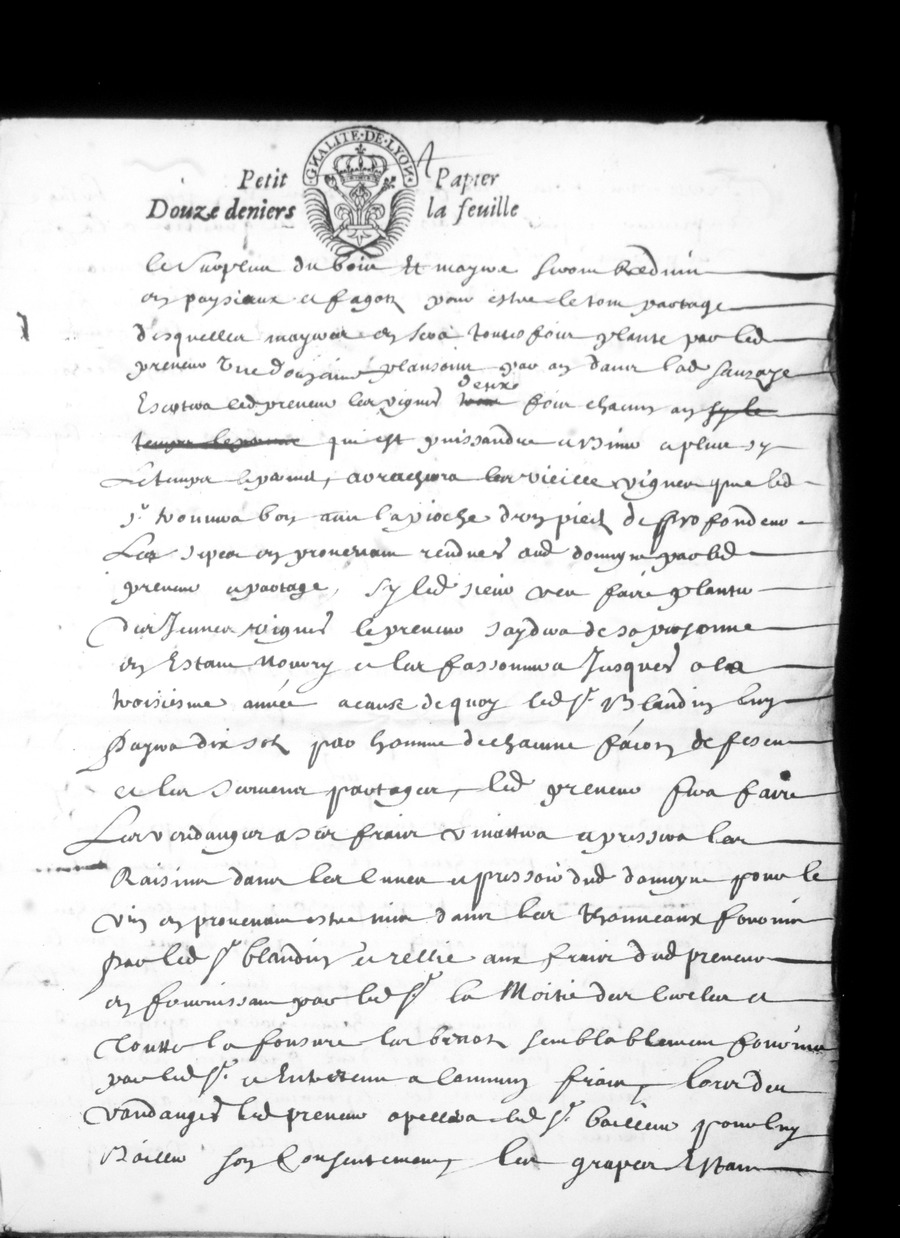 GNALITE·DE·LYON
Petit Papier
Douze deniers la feuille
le surplus du bois et mayere seront reduits
en paysseaux et fagotz pour estre le tout partage
desquelles mayeres en sera toutesfois plante par led
preneur une douzaine plansons par an dans lad sausaye
Escotera led preneur les vignes deux fois chacun an sy le
temps le permet qui est puissandre et biner et plus sy
Le temps le permet, arrachera les vieille vignes que led
sr trouvera bon avec la pioche d'un pied de proffondeur
Les sepes en provenant rendues aud domeyne par led
preneur et partage, sy led sieur veu faire planter
des Jeunes vignes le preneur saydera de sa personne
en Estant nourry et les fassonnera Jusques a la
troisiesme année a cause de quoy led sr Blandin luy
Payera dix solz par homme de chacune façon de
et les partager, led preneur fera faire
Les vendanges a ses frais et pressera les
Raisins dans les cuves et pressoir dud domeyne pour le
vin en provenant estre mis dans les thonneaux fournis
par led sr blandin et relie aux frais dud preneur
en fournissant par led sr la Moitie des et
toutte la fonsure les semblablement fournie
par led sr et Entretenu a communs frais, lors des
vandanges led preneur apellera led sr bailleur pour luy
Bailler son Consentement, les grapes Estant